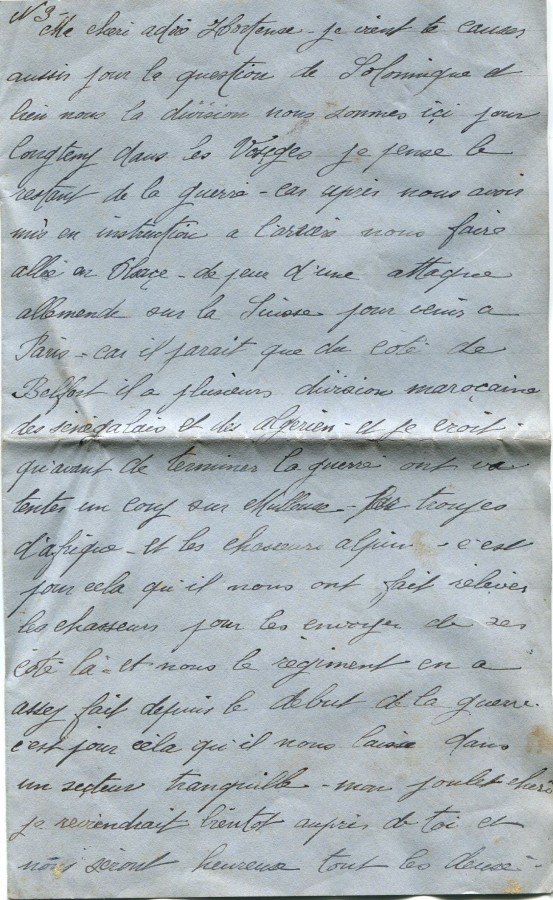 N 3-
Ma cheri adoré Hortense - je vient te causer
aussis pour la question de Solonnique et
bien nous la division nous sommes içi pour
longtemp dans les Vosges je pense le
restant de la guerre - car après nous avoir
mis en instruction a l'arrière nous faire
allée en Alsaçe - de peur d'une attaque
allemende sur la Suisse pour venir a
Paris - car il parait que du coté de
Belfort il a plusieurs division maroçaine
des senegalais et des algerien - et je croit
qu'avant de terminer la guerre ont va
tenter un coup sur Mulhouse - troupes
d'afrique - et les chasseurs alpin - c'est
pour cela qu'il nous ont fait relever
les chasseurs pour les envoyer de ses
côté là - et nous le regiment en a
assez fait depuis le debut de la guerre.
c'est pour cela qu'il nous laisse dans
un secteur tranquille - mon poulet cheri
je reviendrait bientot aupres de toi et
nous seront heureux tout les deux -